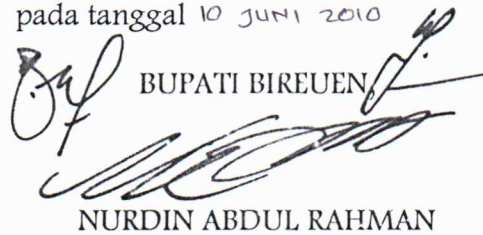 pada tanggal 10 JUNI 2010
BUPATI BIREUEN,
NURDIN ABDUL RAHMAN